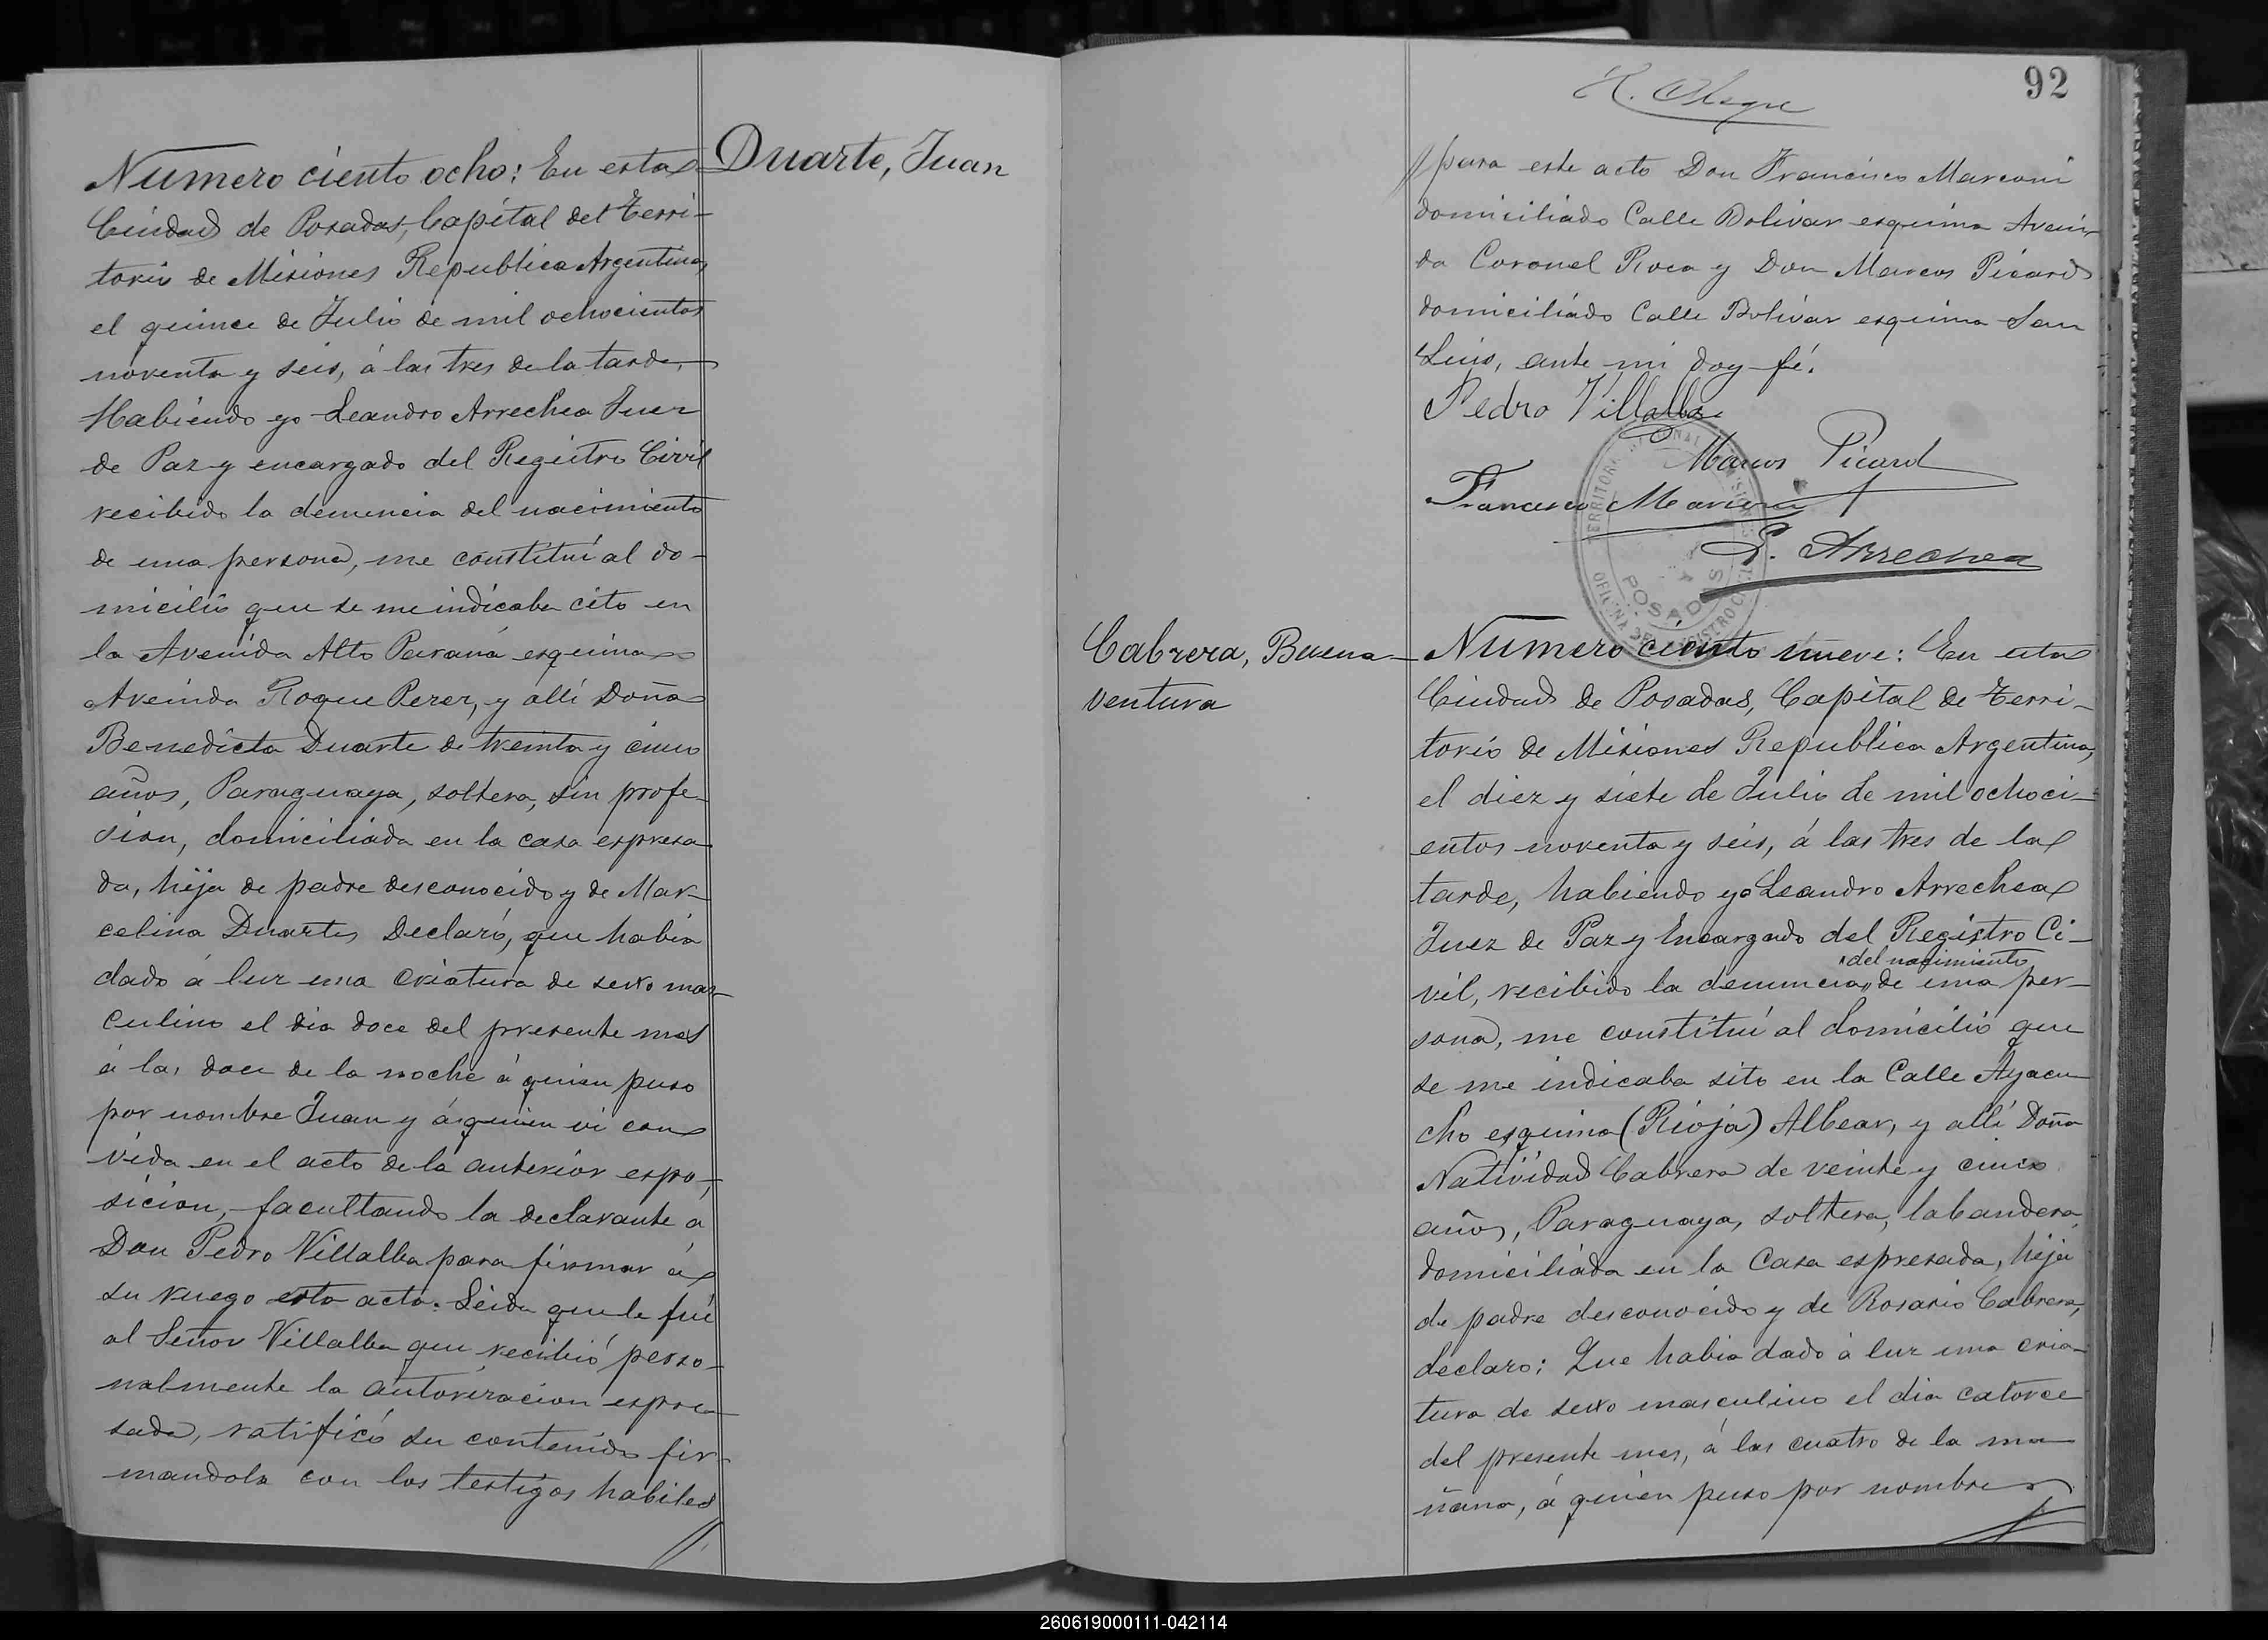 Duarte, Juan
Numero ciento ocho: En esta
Ciudad de Posadas, Capital del Terri-
torio de Misiones Republica Argentina,
el quince de Julio de mil ochocientos
noventa y seis, á las tres de la tarde,
Habiendo yo Leandro Arrechea Juez
de Paz y encargado del Registro Civil
recibido la denuncia del nacimiento
de una persona, me constituí al do-
micilio que se me indicaba cito en
la Avenida Alto Paraná esquina
Avenida Roque Perez, y allí Doña
Benedicta Duarte de treinta y cinco
años, Paraguaya, soltera, sin profe-
sion, domiciliada en la casa espresa
da, hija de padre desconocido y de Mar-
celina Duarte, Declaró, que habia
dado á luz una criatura de sexo mas-
culino el dia doce del presente mes
á las doce de la noche á quien puso
por nombre Juan y á quien vi con
vida en el acto de la anterior espo-
sicion, facultando la declarante a
Don Pedro Villalba para firmar á
su ruego esta acta. Leida que le fué
al Señor Villalba que recibió perso-
nalmente la autorizacion espre-
sada, ratificó su contenido fir-
mandola con los testigos habiles
92
para este acto Don Francisco Marconi
domiciliado Calle Bolivar esquina Aveni-
da Coronel Roca y Don Marcos Picard
domiciliado Calle Bolivar esquina San
Luis, ante mi doy fé.
Pedro Villalba
Marcos Picard
Francisco Marconi
L. Arrechea
POSADAS
Cabrera, Buena-
ventura
Numero ciento nueve: En esta
Ciudad de Posadas, Capital de Terri-
torio de Misiones Republica Argentina,
el diez y siete de Julio de mil ochoci-
entos noventa y seis, á las tres de la
tarde, habiendo yo Leandro Arrechea
Juez de Paz y Encargado del Registro Ci-
del nacimiento
vil, recibido la denuncia de una per-
sona, me constituí al domicilio que
se me indicaba sito en la Calle Ayacu-
cho esquina (Rioja) Albear, y allí Doña
Natividad Cabrera de veinte y cinco
años, Paraguaya, soltera, labandera,
domiciliada en la Casa espresada, hija
de padre desconocido y de Rosario Cabrera,
declaro: Que habia dado á luz una cria-
tura de sexo masculino el dia catorce
del presente mes, á las cuatro de la ma-
ñana, á quien puso por nombre
260619000111-042114